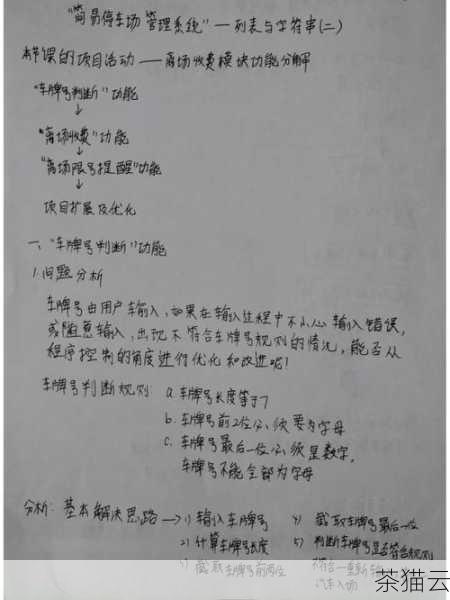 "简易停车场管理系统"—列表与字符串(二)
本节课的项目活动——离场收费模块功能分解
"车牌号判断"功能
↓
"离场收费"功能
↓
"离场限号提醒"功能
↓
项目扩展及优化
一、"车牌号判断"功能
1.问题分析
车牌号由用户输入,如果在输入过程中不小心输入错误,
或随意输入,出现不符合车牌号规则的情况,能否从
程序控制的角度进行优化和改进呢!
车牌号判断规则 a.车牌号长度等于7
b.车牌号前2位必须要为字母
c.车牌号最后一位必须是数字,
车牌号不能全部为字母
分析:基本解决思路→1)输入车牌号 4)截取车牌号最后一位
2)计算车牌号长度 5)判断车牌号是否符合规则
3)截取车牌前两位 不符合—重新输
汽车入场
茶猫云